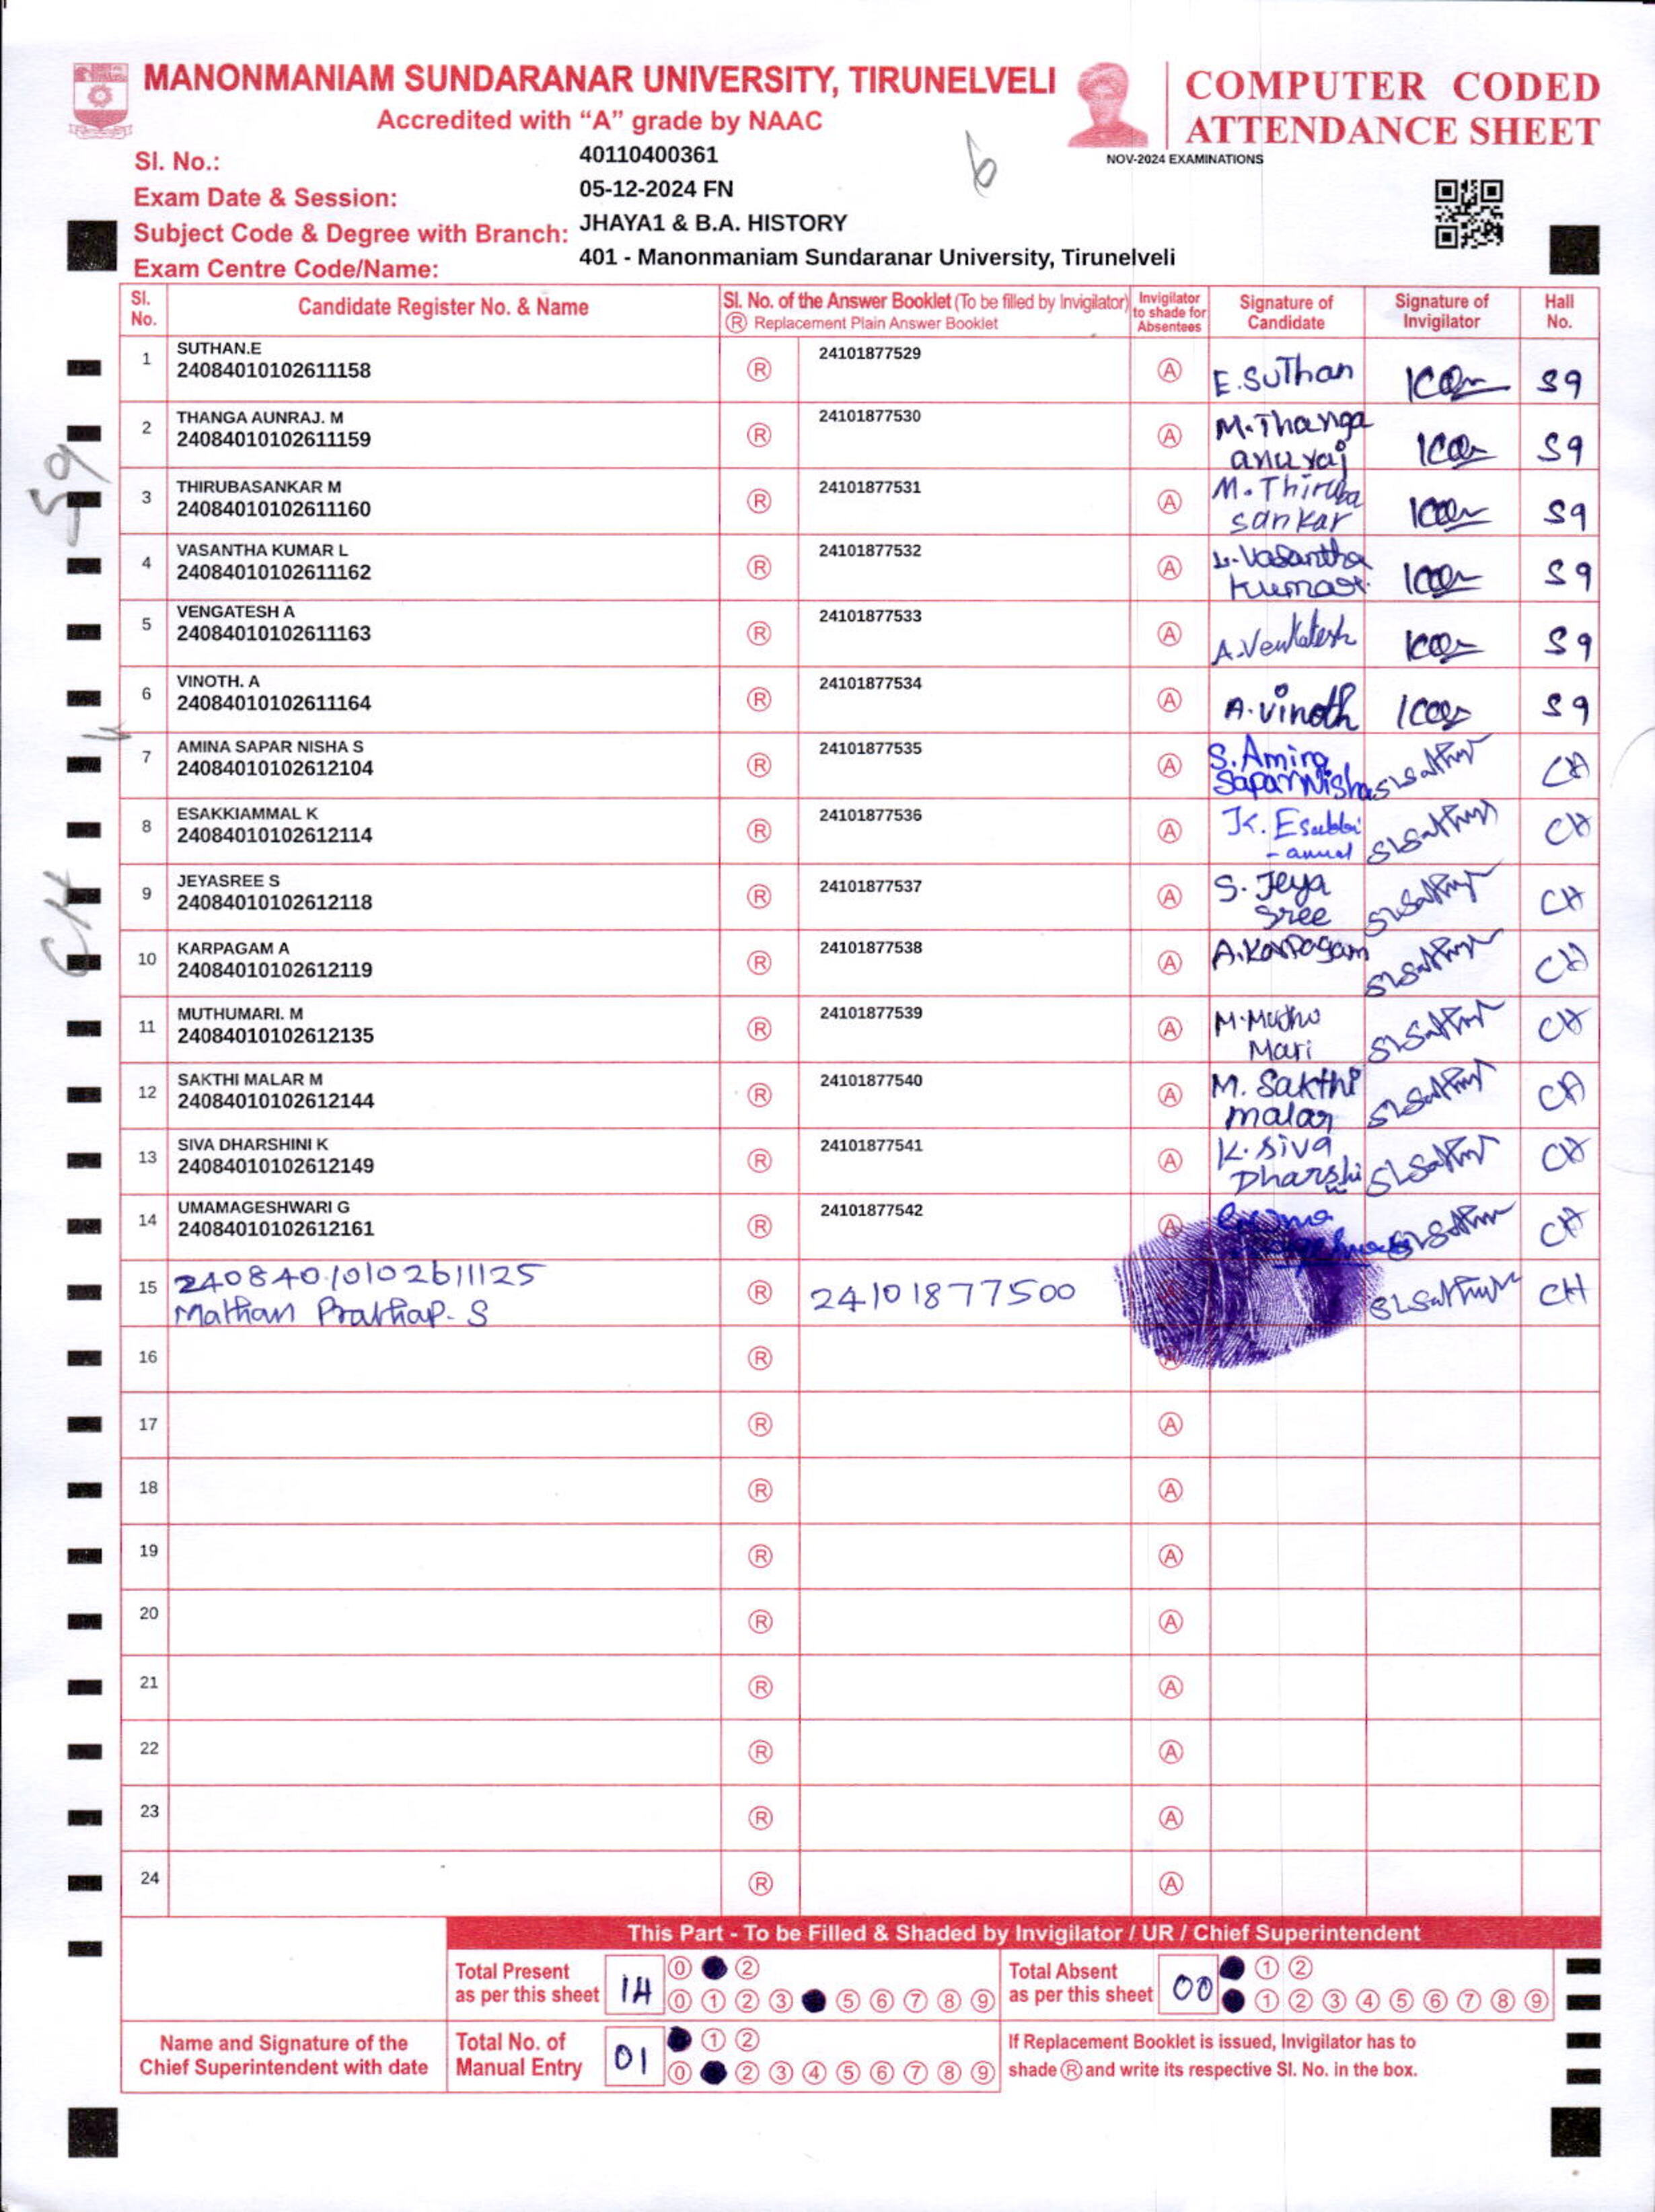 MANONMANIAM SUNDARANAR UNIVERSITY, TIRUNELVELI
Accredited with “A” grade by NAAC
COMPUTER CODED
ATTENDANCE SHEET
NOV-2024 EXAMINATIONS
Sl. No.: 40110400361
Exam Date & Session: 05-12-2024 FN
Subject Code & Degree with Branch: JHAYA1 & B.A. HISTORY
Exam Centre Code/Name: 401 - Manonmaniam Sundaranar University, Tirunelveli
6
Sl. No. Candidate Register No. & Name Sl. No. of the Answer Booklet (To be filled by Invigilator) Ⓡ Replacement Plain Answer Booklet Invigilator to shade for Absentees Signature of Candidate Signature of Invigilator Hall No.
1 SUTHAN.E 24084010102611158 Ⓡ 24101877529 Ⓐ E.SuThan S9
2 THANGA AUNRAJ. M 24084010102611159 Ⓡ 24101877530 Ⓐ M.Thanga anuraj S9
3 THIRUBASANKAR M 24084010102611160 Ⓡ 24101877531 Ⓐ M.Thiruba sankar S9
4 VASANTHA KUMAR L 24084010102611162 Ⓡ 24101877532 Ⓐ L.Vasantha kumar. S9
5 VENGATESH A 24084010102611163 Ⓡ 24101877533 Ⓐ A.Venkatesh S9
6 VINOTH. A 24084010102611164 Ⓡ 24101877534 Ⓐ A.Vinoth S9
7 AMINA SAPAR NISHA S 24084010102612104 Ⓡ 24101877535 Ⓐ S.Amina SaparNisha CH
8 ESAKKIAMMAL K 24084010102612114 Ⓡ 24101877536 Ⓐ K. Esakki -ammal CH
9 JEYASREE S 24084010102612118 Ⓡ 24101877537 Ⓐ S. Jeya Sree CH
10 KARPAGAM A 24084010102612119 Ⓡ 24101877538 Ⓐ A.Karpagam CH
11 MUTHUMARI. M 24084010102612135 Ⓡ 24101877539 Ⓐ M.Muthu Mari CH
12 SAKTHI MALAR M 24084010102612144 Ⓡ 24101877540 Ⓐ M. Sakthi malar CH
13 SIVA DHARSHINI K 24084010102612149 Ⓡ 24101877541 Ⓐ K.Siva Dharshi CH
14 UMAMAGESHWARI G 24084010102612161 Ⓡ 24101877542 Ⓐ CH
15 24084010102611125 Mathan Prathap. S Ⓡ 24101877500 CH
16 Ⓡ Ⓐ
17 Ⓡ Ⓐ
18 Ⓡ Ⓐ
19 Ⓡ Ⓐ
20 Ⓡ Ⓐ
21 Ⓡ Ⓐ
22 Ⓡ Ⓐ
23 Ⓡ Ⓐ
24 Ⓡ Ⓐ
S9
CH
This Part - To be Filled & Shaded by Invigilator / UR / Chief Superintendent
Total Present as per this sheet 14 ⓪ ②
⓪ ① ② ③ ⑤ ⑥ ⑦ ⑧ ⑨
Total Absent as per this sheet 00 ① ②
① ② ③ ④ ⑤ ⑥ ⑦ ⑧ ⑨
Name and Signature of the Chief Superintendent with date
Total No. of Manual Entry 01 ① ②
⓪ ② ③ ④ ⑤ ⑥ ⑦ ⑧ ⑨
If Replacement Booklet is issued, Invigilator has to
shade Ⓡ and write its respective Sl. No. in the box.